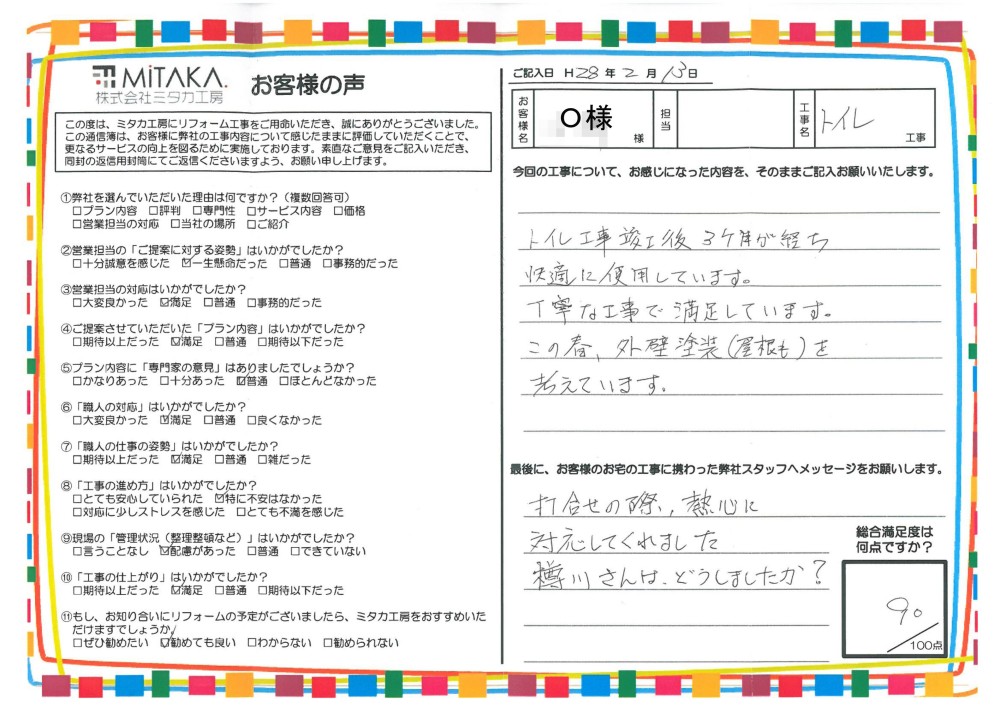 MiTAKA.
株式会社ミタカ工房
お客様の声
この度は、ミタカ工房にリフォーム工事をご用命いただき、誠にありがとうございました。
この通信簿は、お客様に弊社の工事内容について感じたままに評価していただくことで、
更なるサービスの向上を図るために実施しております。素直なご意見をご記入いただき、
同封の返信用封筒にてご返信くださいますよう、お願い申し上げます。
①弊社を選んでいただいた理由は何ですか？（複数回答可）
□プラン内容 □評判 □専門性 □サービス内容 □価格
□営業担当の対応 □当社の場所 □ご紹介
②営業担当の「ご提案に対する姿勢」はいかがでしたか？
□十分誠意を感じた ☑一生懸命だった □普通 □事務的だった
③営業担当の対応はいかがでしたか？
□大変良かった ☑満足 □普通 □事務的だった
④ご提案させていただいた「プラン内容」はいかがでしたか？
□期待以上だった ☑満足 □普通 □期待以下だった
⑤プラン内容に「専門家の意見」はありましたでしょうか？
□かなりあった □十分あった ☑普通 □ほとんどなかった
⑥「職人の対応」はいかがでしたか？
□大変良かった ☑満足 □普通 □良くなかった
⑦「職人の仕事の姿勢」はいかがでしたか？
□期待以上だった ☑満足 □普通 □雑だった
⑧「工事の進め方」はいかがでしたか？
□とても安心していられた ☑特に不安はなかった
□対応に少しストレスを感じた □とても不満を感じた
⑨現場の「管理状況（整理整頓など）」はいかがでしたか？
□言うことなし ☑配慮があった □普通 □できていない
⑩「工事の仕上がり」はいかがでしたか？
□期待以上だった ☑満足 □普通 □期待以下だった
⑪もし、お知り合いにリフォームの予定がございましたら、ミタカ工房をおすすめいた
だけますでしょうか
□ぜひ勧めたい ☑勧めても良い □わからない □勧められない
ご記入日 H28年2月13日
お客様名 O様 様 担当 工事名 トイレ 工事
今回の工事について、お感じになった内容を、そのままご記入お願いいたします。
トイレ工事竣工後 3ケ月が経ち
快適に使用しています。
丁寧な工事で満足しています。
この春、外壁塗装(屋根も)を
考えています。
最後に、お客様のお宅の工事に携わった弊社スタッフへメッセージをお願いします。
打合せの際、熱心に
対応してくれました
樽川さんは、どうしましたか？
総合満足度は
何点ですか？
90
100点